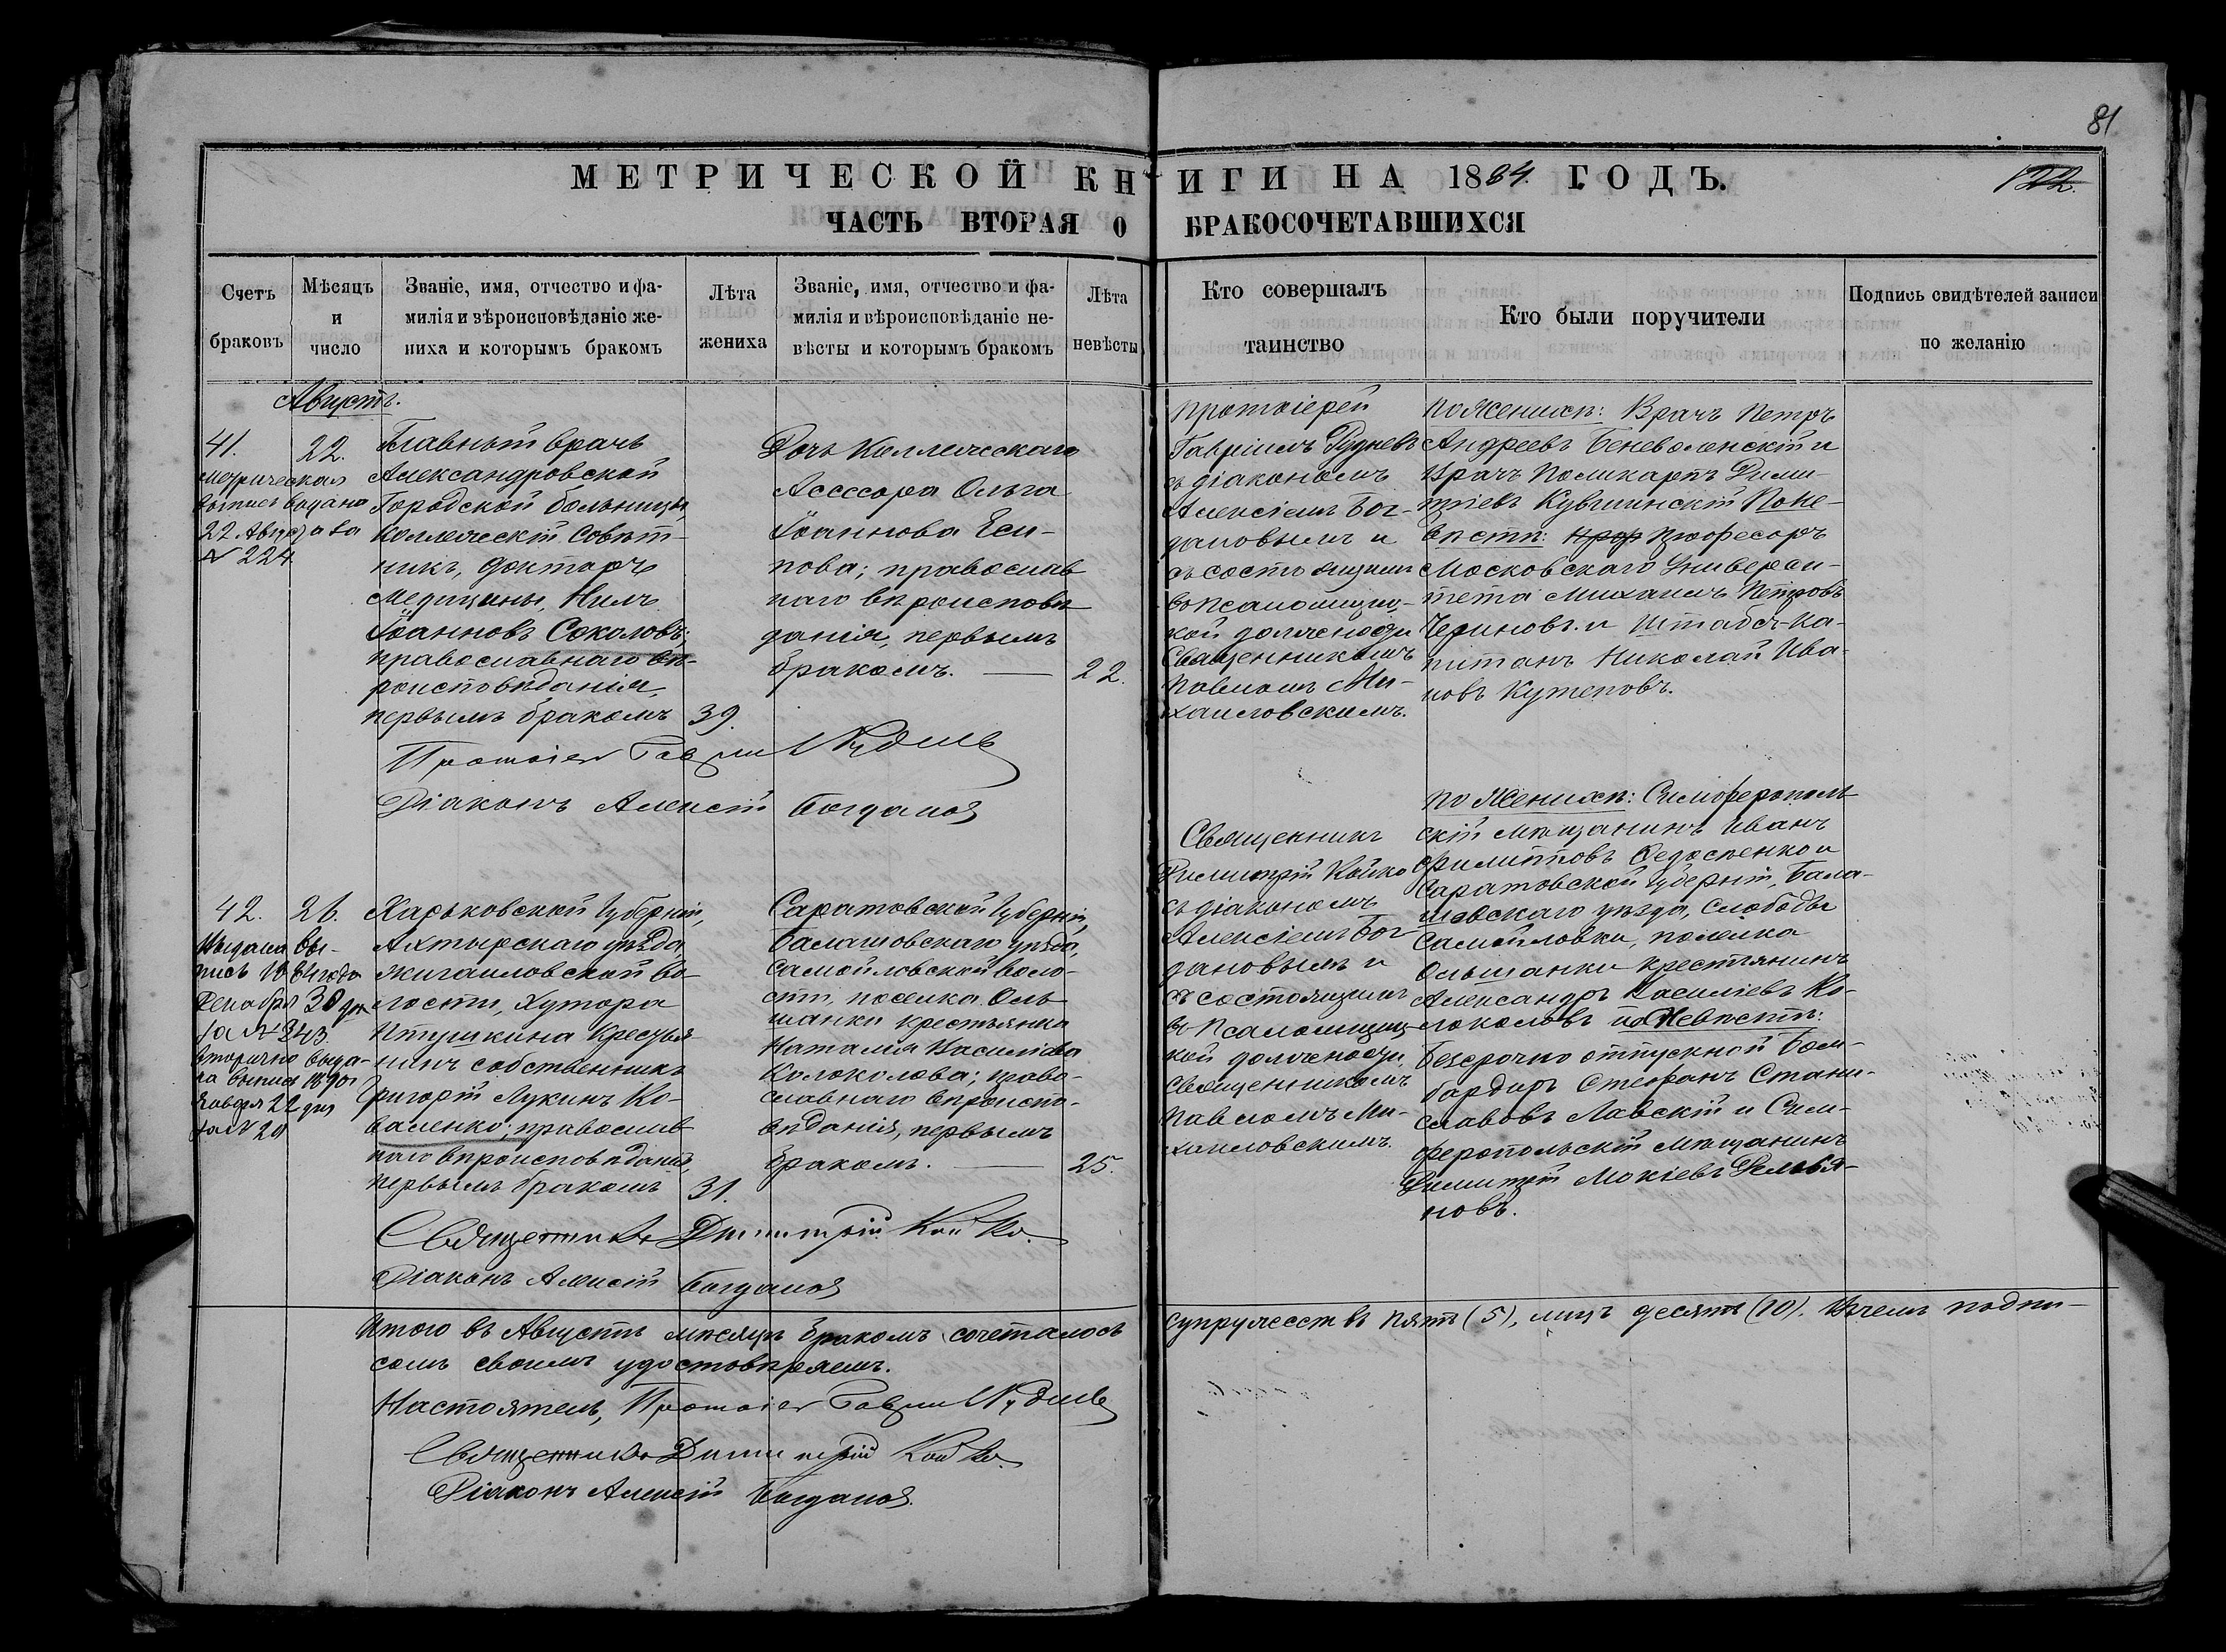 81
МЕТРИЧЕСКОЙ КНИГИ НА 1884. ГОДЪ.
122.
ЧАСТЬ ВТОРАЯ О БРАКОСОЧЕТАВШИХСЯ
Счетъ браковъ
Мѣсяцъ и число
Званіе, имя, отчество и фа-
милія и вѣроисповѣданіе же-
ниха и которымъ бракомъ
Лѣта жениха
Званіе, имя, отчество и фа-
милія и вѣроисповѣданіе не-
вѣсты и которымъ бракомъ
Лѣта невѣсты
Кто совершалъ
таинство
Кто были поручители
Подпись свидѣтелей записи
по желанію
Августъ.
41.
22.
Метрическая
выпись выдана
22 Августа за
№ 224.
Главный врачъ
Александровской
Городской больницы,
Коллежскій Совѣт-
никъ, Докторъ
Медицины, Нилъ
Іоанновъ Соколовъ;
православнаго вѣ-
роисповѣданія,
первымъ бракомъ
39.
Дочь Коллежскаго
Ассесора Ольга
Іоаннова Еси-
пова; православ
наго вѣроисповѣ
данія, первымъ
бракомъ.
22.
Протоіерей
Гавріилъ Рудневъ
съ діакономъ
Алексіемъ Бог-
дановымъ и
съ состоящимъ
въ псаломщиц-
кой должности
Священникомъ
Павломъ Ми-
хаиловскимъ.
По Женихѣ: Врачъ Петръ
Андреевъ Беневоленскій и
Врачъ Поликарпъ Дими-
тріевъ Кувшинскій По Не-
вѣстѣ: Проф Профессоръ
Московскаго Универси-
тета Михаилъ Петровъ
Чериновъ и Штабсъ-Ка-
питанъ Николай Ива-
новъ Кутеповъ.
Протоіер Гавріил Руднев
Діаконъ Алексій Богданов
42.
26.
Выдана вы-
пись 1884 года
Декабря 30 дня
за № 343.
Вторично выда-
на выпись 1890 г
Января 22 дня
за № 20
Харьковской Губерніи,
Ахтырскаго уѣзда,
Жигаиловской во-
лости, Хутора
Птушкина крестья-
нинъ собственникъ
Григорій Лукинъ Ко-
валенко; православ
наго вѣроисповѣданія,
первымъ бракомъ
31.
Саратовской Губерніи,
Балашовскаго уѣзда,
Самойловской воло-
сти, поселка Оль-
шанки крестьянка
Наталія Василіева
Колоколова; право-
славнаго вѣроиспо-
вѣданія, первымъ
бракомъ.
25.
Священникъ
Димитрій Койко
съ діакономъ
Алексіемъ Бог-
дановымъ и
съ состоящимъ
въ псаломщиц-
кой должности
Священникомъ
Павломъ Ми-
хаиловскимъ.
По Женихѣ: Симферополь
скій мѣщанинъ Иванъ
Филипповъ Федосѣенко и
Саратовской Губерніи, Бала-
шовскаго уѣзда, Слободы
Самойловки, поселка
Ольшанки крестьянинъ
Александръ Василіевъ Ко-
локоловъ по Невѣстѣ:
Безсрочно отпускной Бом-
бардиръ Стефанъ Стани-
славовъ Лавскій и Сим-
феропольскій мѣщанинъ
Димитрій Мокіевъ Демья-
новъ.
Священникъ Димитрій Койко.
Діаконъ Алексій Богданов
Итого въ Августѣ мѣсяцѣ бракомъ сочеталось супружествъ пять (5), лицъ десять (10). Въ чемъ подпи-
сомъ своимъ удостовѣряемъ.
Настоятель, Протоіер Гавріил Руднев
Священникъ Димитрій Койко.
Діаконъ Алексій Богданов.